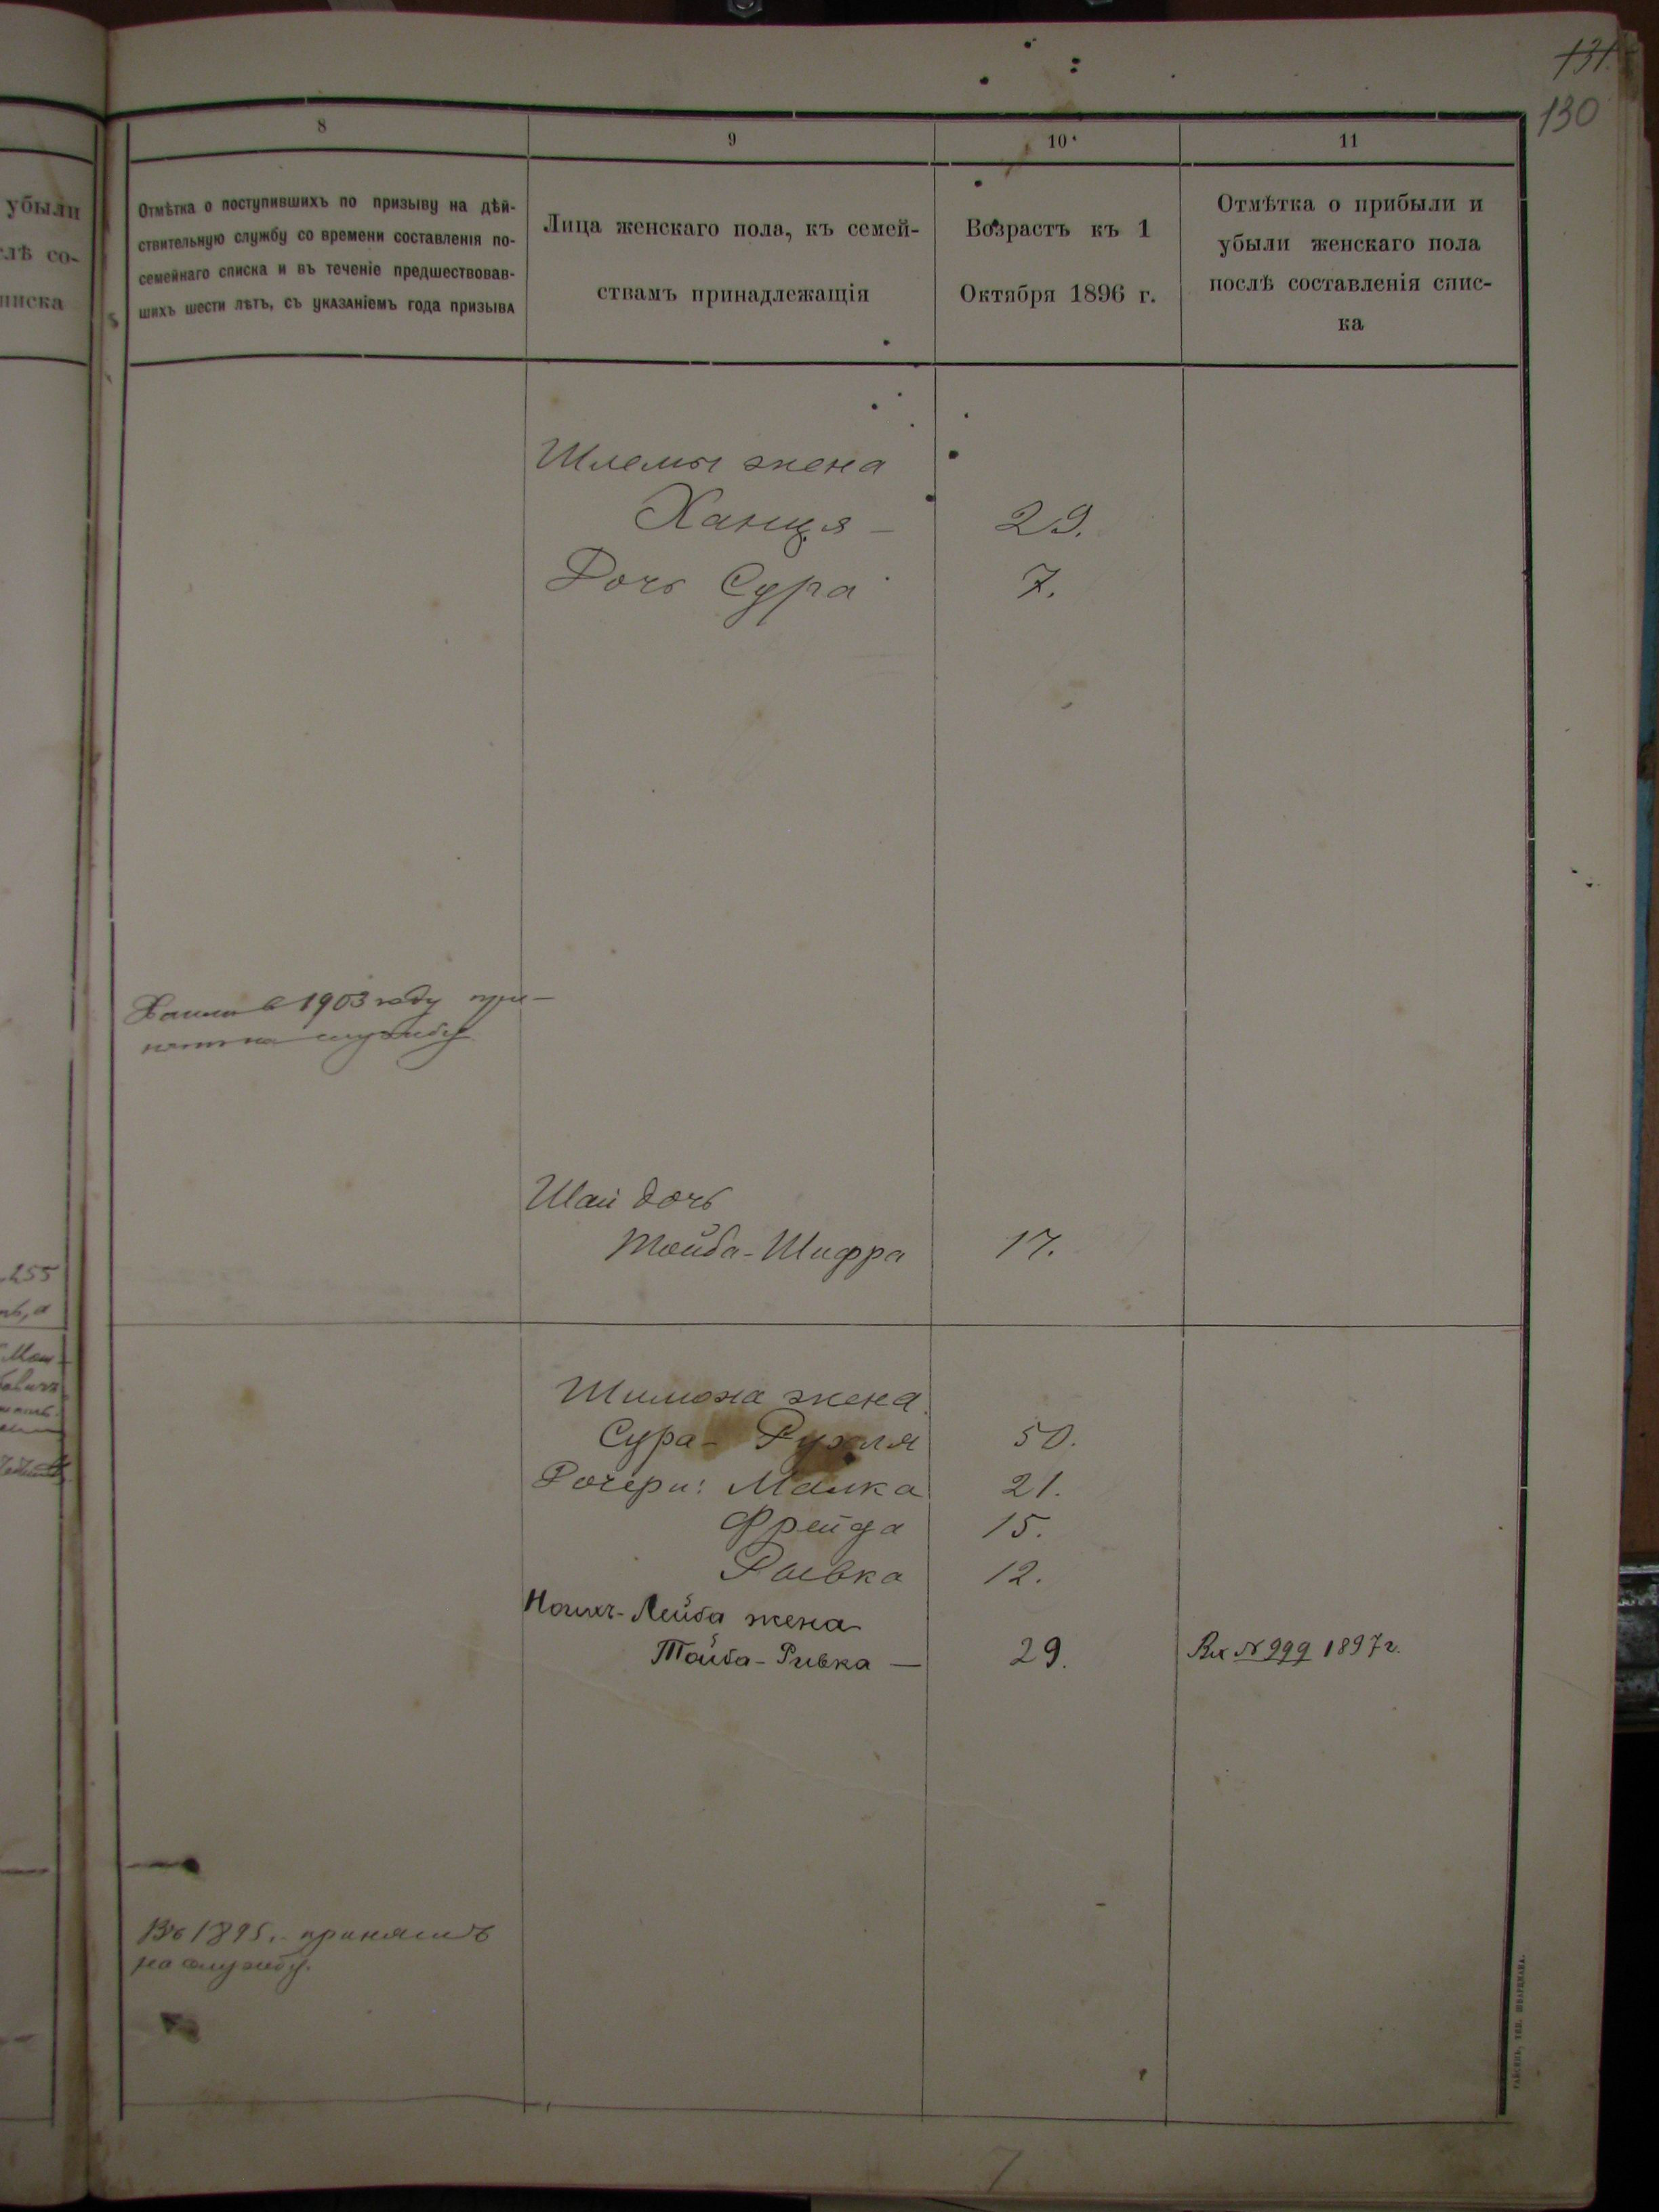 131.
130
8
9
10
11
убыли
слѣ со-
писка
Отмѣтка о поступившихъ по призыву на дѣй-
ствительную службу со времени составленія по-
семейнаго списка и въ теченіе предшествовав-
шихъ шести лѣтъ, съ указаніемъ года призыва
Лица женскаго пола, къ семей-
ствамъ принадлежащія
Возрастъ къ 1
Октября 1896 г.
Отмѣтка о прибыли и
убыли женскаго пола
послѣ составленія спис-
ка
Шлемы жена
Ханця — 29.
Дочь Сура 7.
в 1903 году при-
нят на службу
Шаи дочь
Тойба-Шифра 17.
255
Шимона жена
Сура-Рухля 50.
Дочери: Малка 21.
Фрейда 15.
Рывка 12.
Лейба жена
Тойба-Ривка — 29. Вх № 999 1897 г.
Въ 1895. принятъ
на службу.
7